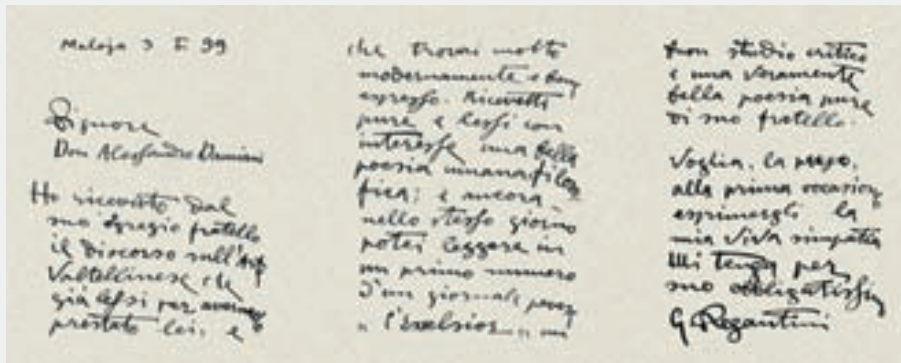 Maloja 3 I 99
Signore
Don Alessandro Damiani
Ho ricevuto dal
suo egregio fratello
il discorso sull'Arte
Valtellinese che
già lessi per avermelo
prestato lei, e
che trovai molto
modernamente e ben
espresso. Ricevetti
pure e lessi con
interesse una bella
poesia umana filoso
fica; e ancora
nello stesso giorno
potei leggere in
un primo numero
d'un giornale
"l'Exelsior" un
buon studio critico
e una veramente
bella poesia pure
di suo fratello.
Voglia, la prego,
alla prima occasione
esprimergli la
mia viva simpatia
Mi tenga per
suo obbligatissimo
G. Segantini